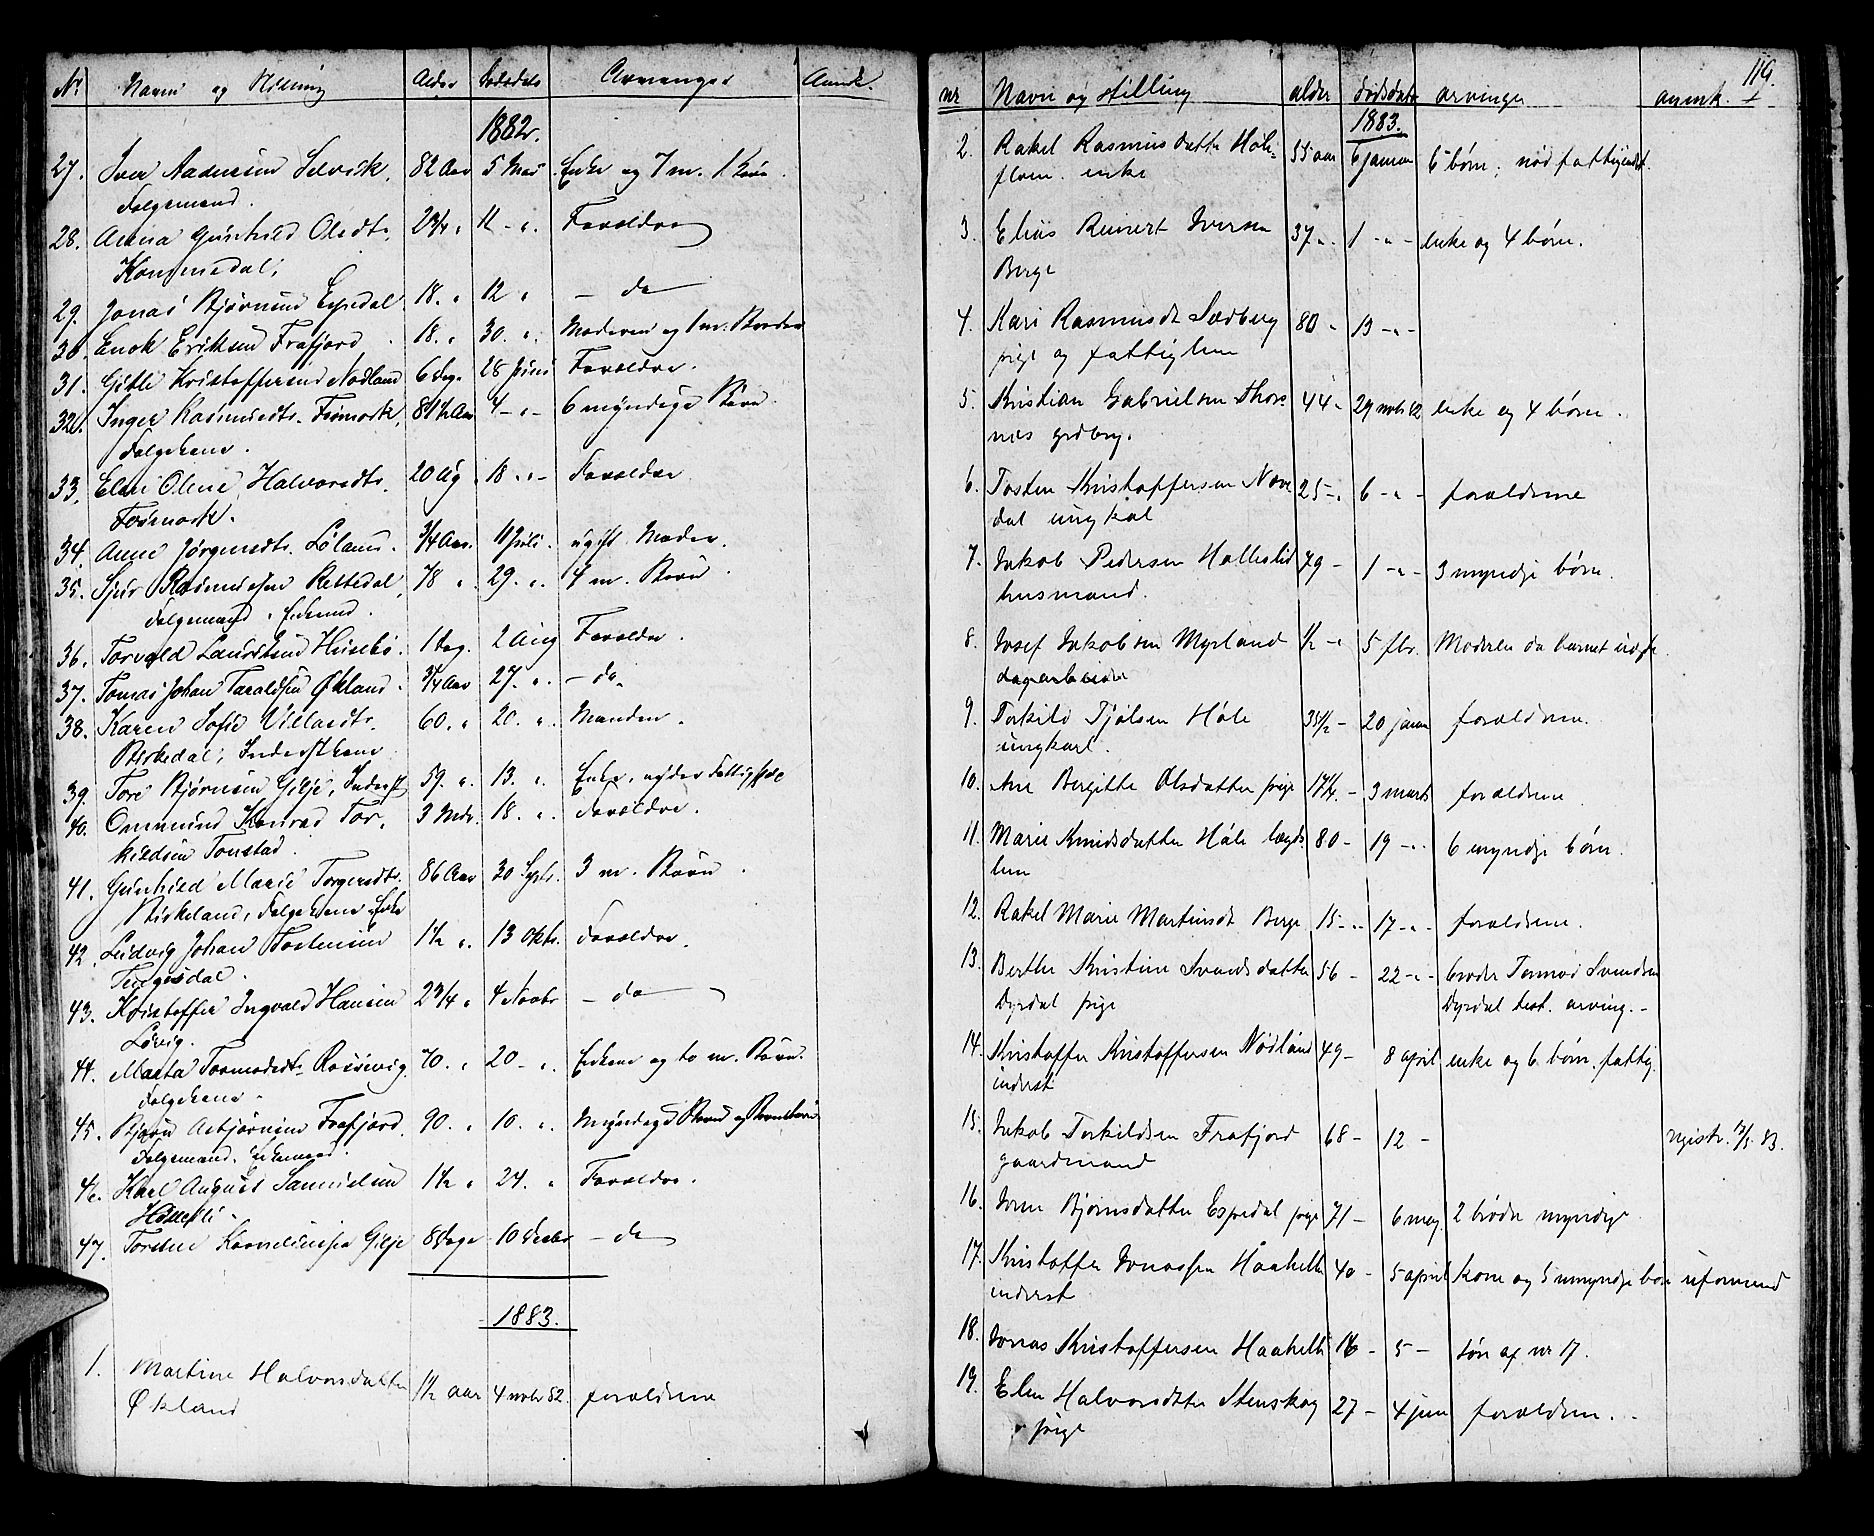 Nr. Navn og Stilling Alder Dødsdato Arvinger Anmk.
1882.
27. Iver Andersen Selvik, 82 Aar 5 Mai Enke og 7 m. Børn.
Følgemand.
28. Anna Gunhild Olsdtr. 2 3/4 " 11 - " Forældre
Kommedal,
29. Jonas Bjørnsen Espedal 18. " 12 " - do
30. Enok Eriksen Frafjord 18. " 30. " Moderen og 1 m. Broder
31. Gitle Kristoffersen Nødland 6 Dag. 28 Juni Forældre.
32. Inger Rasmusdtr. Fosmork, 81 1/2 Aar 4 - " - 6 myndige Børn.
Følgekone.
33. Elen Oline Halvorsdtr. 20 Dg 18 - " - Forældre
Fosmork.
34. Anne Jørgensdtr. Løland. 3/4 Aar. 11 Juli. ugift Moder.
35. Sjur Rasmussen Rettedal, 78 " 29. " 4 m. Børn
Følgemand, Enkemd.
36. Torvald Lauritsen Husebø. 1 Dag. 2 Aug Forældre.
37. Tomas Johan Taraldsen Økland. 3/4 Aar 27. " - do.
38. Karen Sofie Villadsdtr. 60. " 20. " Manden.
Birkedal, Inderstkone
39. Tore Bjørnsen Gilje, Inderst 59. " 13. " Enke, nyder Fattighjælp
40. Ommund Konrad Tor- 3 Mdr. 18. " Forældre.
kildsen Tonstad.
41. Gunhild Marie Torgersdtr. 86 Aar 30 Septr. 3 m. Børn.
Birkeland, Følgekone, Enke
42. Ludvig Johan Tostensen 1 1/2 " 13 Oktr. Forældre.
Tengesdal.
43. Kristoffer Ingvald Hansen 2 3/4 " 4 Novbr - do
Løvig.
44. Marta Tormodsdtr. 70. " 20 - " Enkem og to m. Børn.
Følgekone.
45. Bjørn Asbjørnsen Frafjord 90. " 10. " Myndige Børn og Børnebørn
Følgemand. Enkemand.
46. Karl August Samuelsen 1 1/2 " 24. " Forældre.
Høllesli.
47. Torsten Kornelius[s]en Gilje 8 Dage 10 Decbr - do
1883.
1. Martine Halvorsdatter 1 1/2 aar 4 novbr 82. forældrene
Økland
119.
nr Navn og stilling alder dødsdato arvinger anmk.
1883.
2. Rakel Rasmusdatter Høle- 55 aar 6 januar 6 børn; nød fattigundst.
floen. enke
3. Elias Reinert Iversen 37 " 1 - " - enke og 4 børn.
Berge
4. Kari Rasmusdt Sædberg 80 - 13 - " -
pige og fattiglem
5. Kristian Gabrielsen Thors- 44 - 29 novbr 82 enke og 4 børn.
nes grdbrg.
6. Tosten Kristoffersen Neve- 25 - 6 - " - forældrene
dal ungkal
7. Jakob Pedersen Hølleslid 79 - 1 - " - 3 myndige børn.
husmand.
8. Josef Jakobsen Myrland 1/2 - 5 fbr. Moderen da barnet uægte.
dagarbeider
9. Torkild Tjølsen Høle 35 1/2 - 20 januar forældrene.
ungkarl.
10. Ane Bergitte Olsdatter pige 17 1/2 - 3 marts forældrene
11. Marie Knudsdatter Høle lægds- 80 - 19 - " 6 myndige børn.
lem
12. Rakel Marie Martinsdt Berge 15 - " 17 - " - forældrene.
13. Berthe Kristine Svendsdatter 56 - 22 - " - broder Tormod Svendsen
Dyrdal pige Dyrdal test. arving. -
14. Kristoffer Kristoffersen Nødland 49 - 8 april enke og 6 børn. fattig.
inderst
15. Jakob Torkildsen Frafjord 68 - 12 - registr. 12/5 83.
gaardmand
16. Bjørnsdatter Espedal pige 71 - 6 maj 2 brødre myndige
17. Kristoffer Jonassen Haahelle 40 - 5 april kone og 5 umyndige børn uformuend
inderst
18. Jonas Kristoffersen Haahelle 16 - 5 - søn af nr 17.
19. Elen Halvorsdatter Stenskog 27 - 4 juni forældrene. -
pige